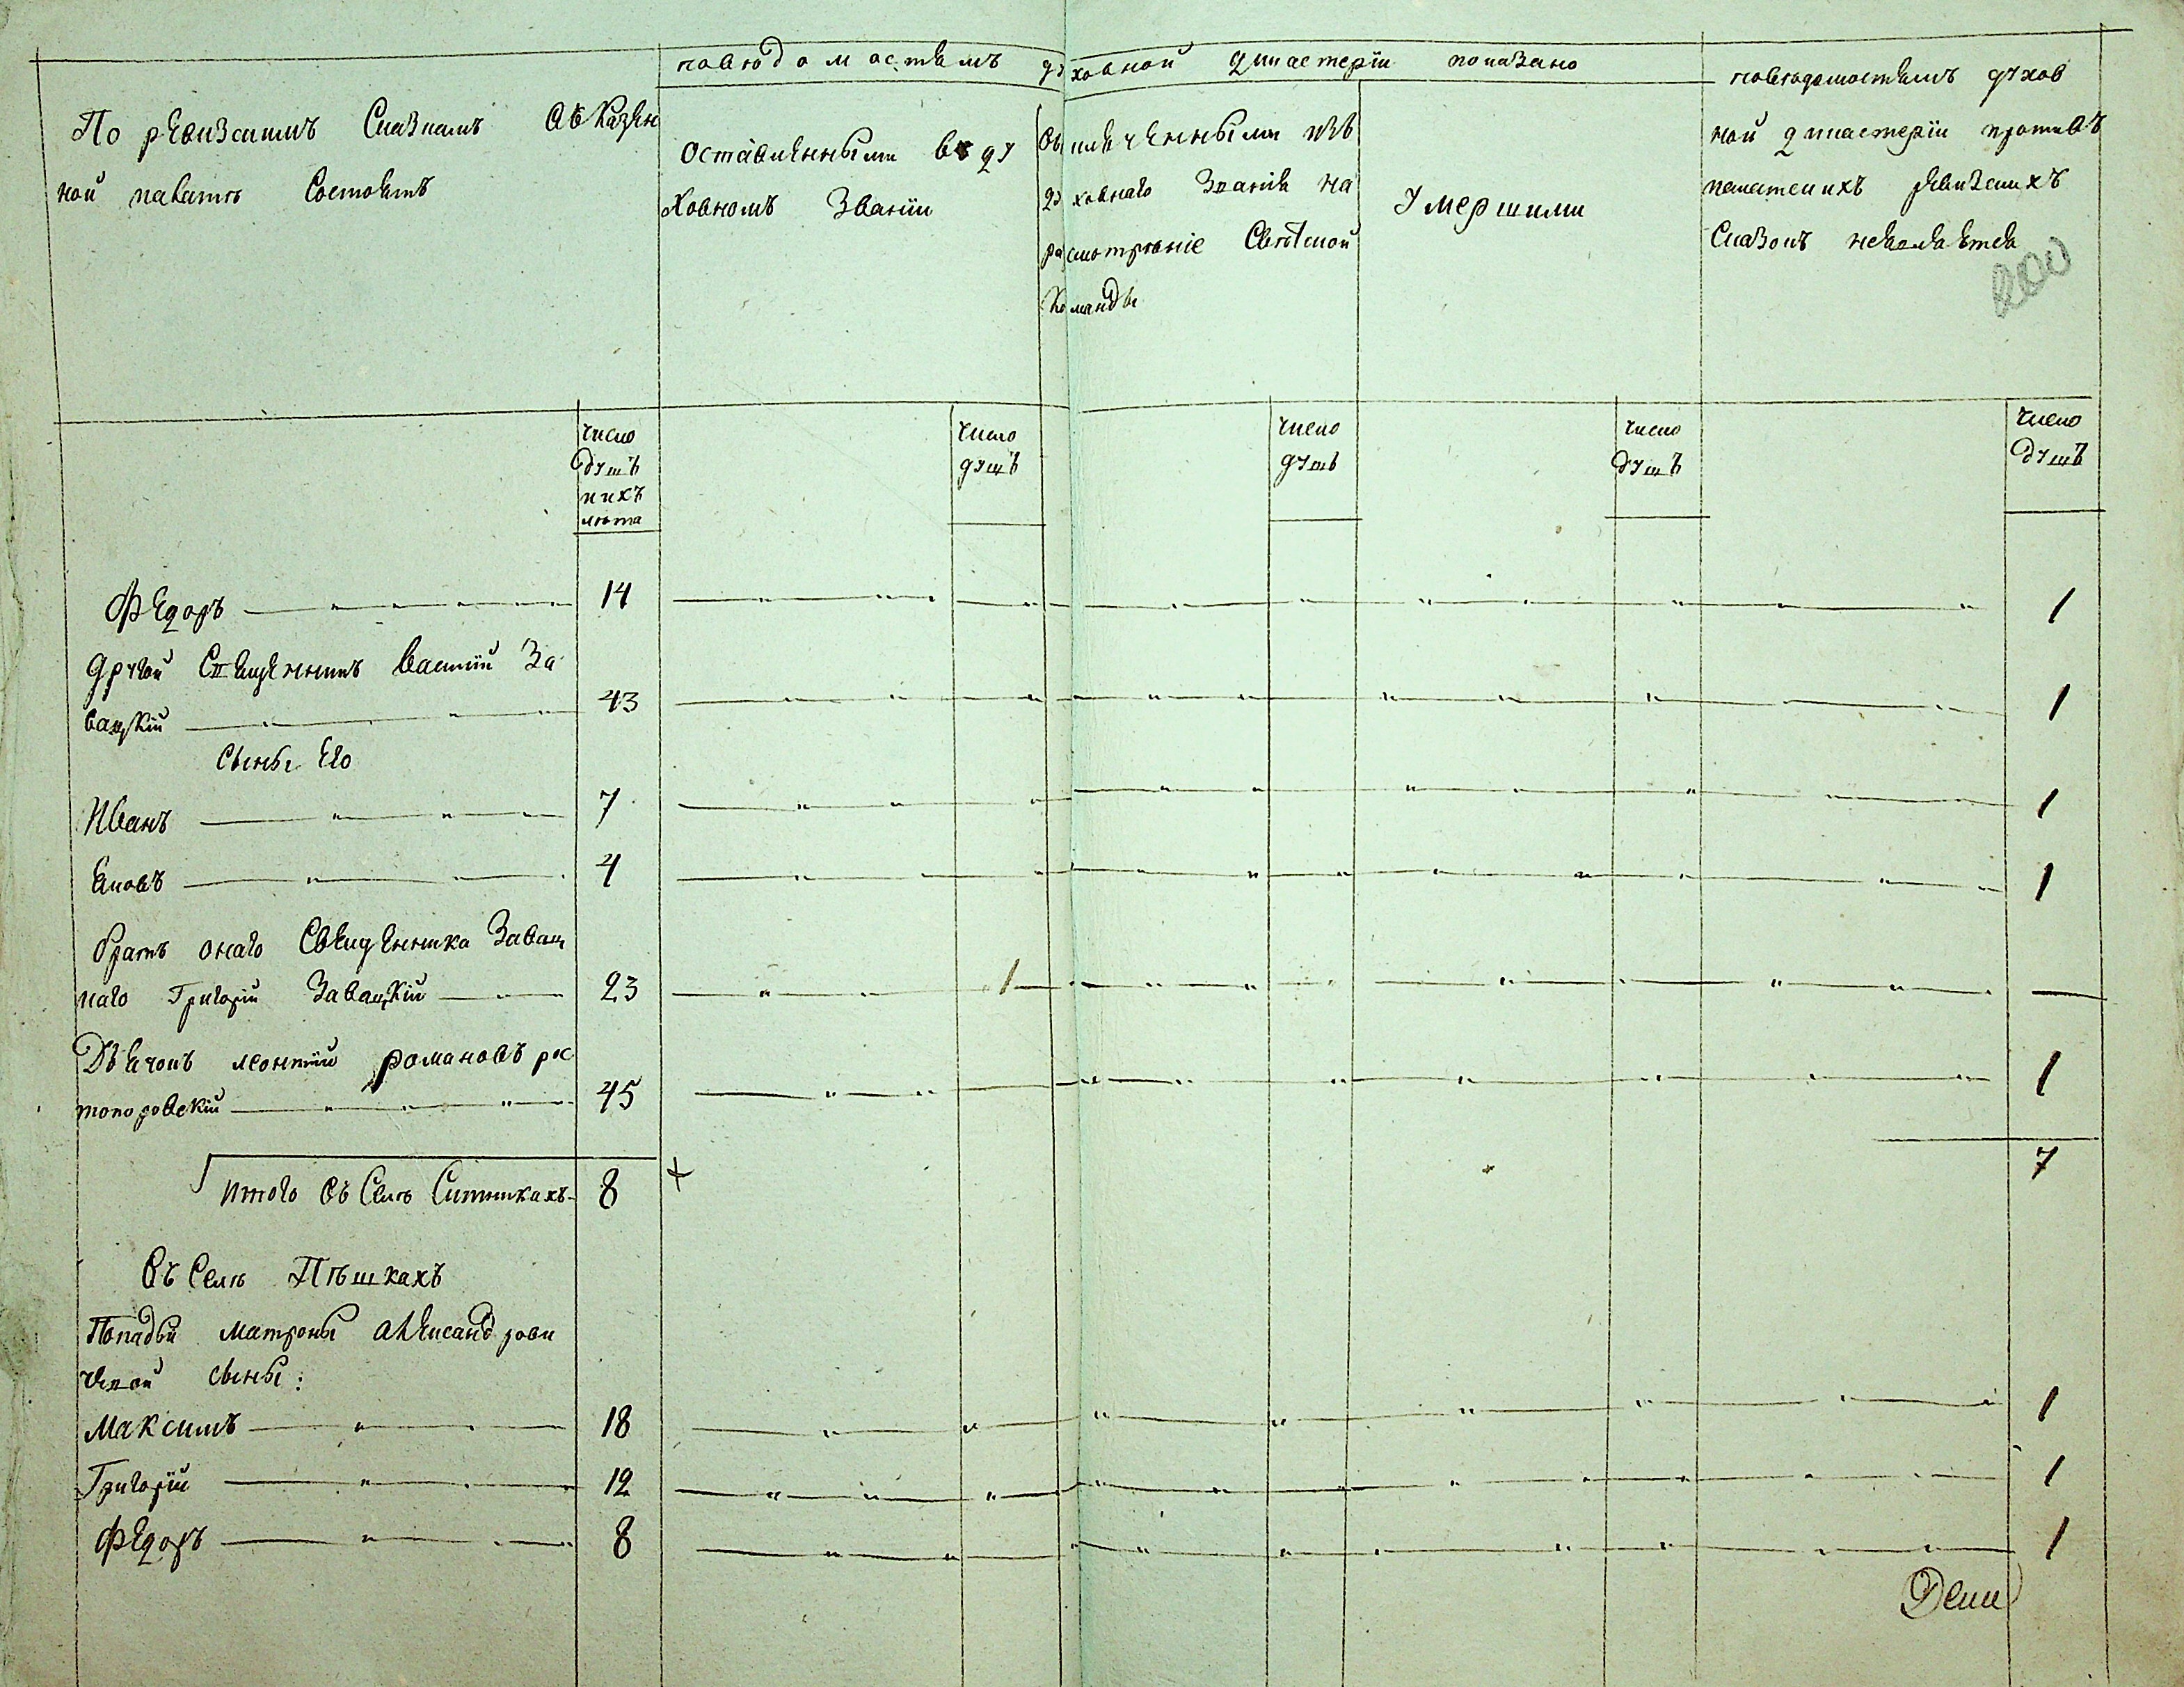 По ревизскимъ Сказкамъ въ Казен
ной палатѣ Состоятъ
повѣдомостямъ духовной дикастеріи показано
Оставленными въ ду
ховномъ Званіи
Выключенными изъ
духовнаго Званія на
расмотрѣніе Свѣтской
Команды
Умершими
повѣдомостямъ духов
ной дикастеріи противъ
ревизскихъ
Сказокъ неявляется
число
душъ
ихъ
лѣта
число
душъ
число
душъ
число
душъ
число
душъ
Федоръ 14 1
другой Священникъ Василій За
вацкій 43 1
Сыны Его
Иванъ 7 1
Яковъ 4 1
братъ онаго Священника Завац
каго Григорій Завацкій 23 1
Дьячокъ леонтій романовъ рос
топоровскій 45 1
итого въ Селѣ Ситникахъ 8 7
Въ Селѣ Пѣшкахъ
Попадьи матроны александрови
чевой сыны:
максимъ 18 1
Григорій 12 1
Федоръ 8 1